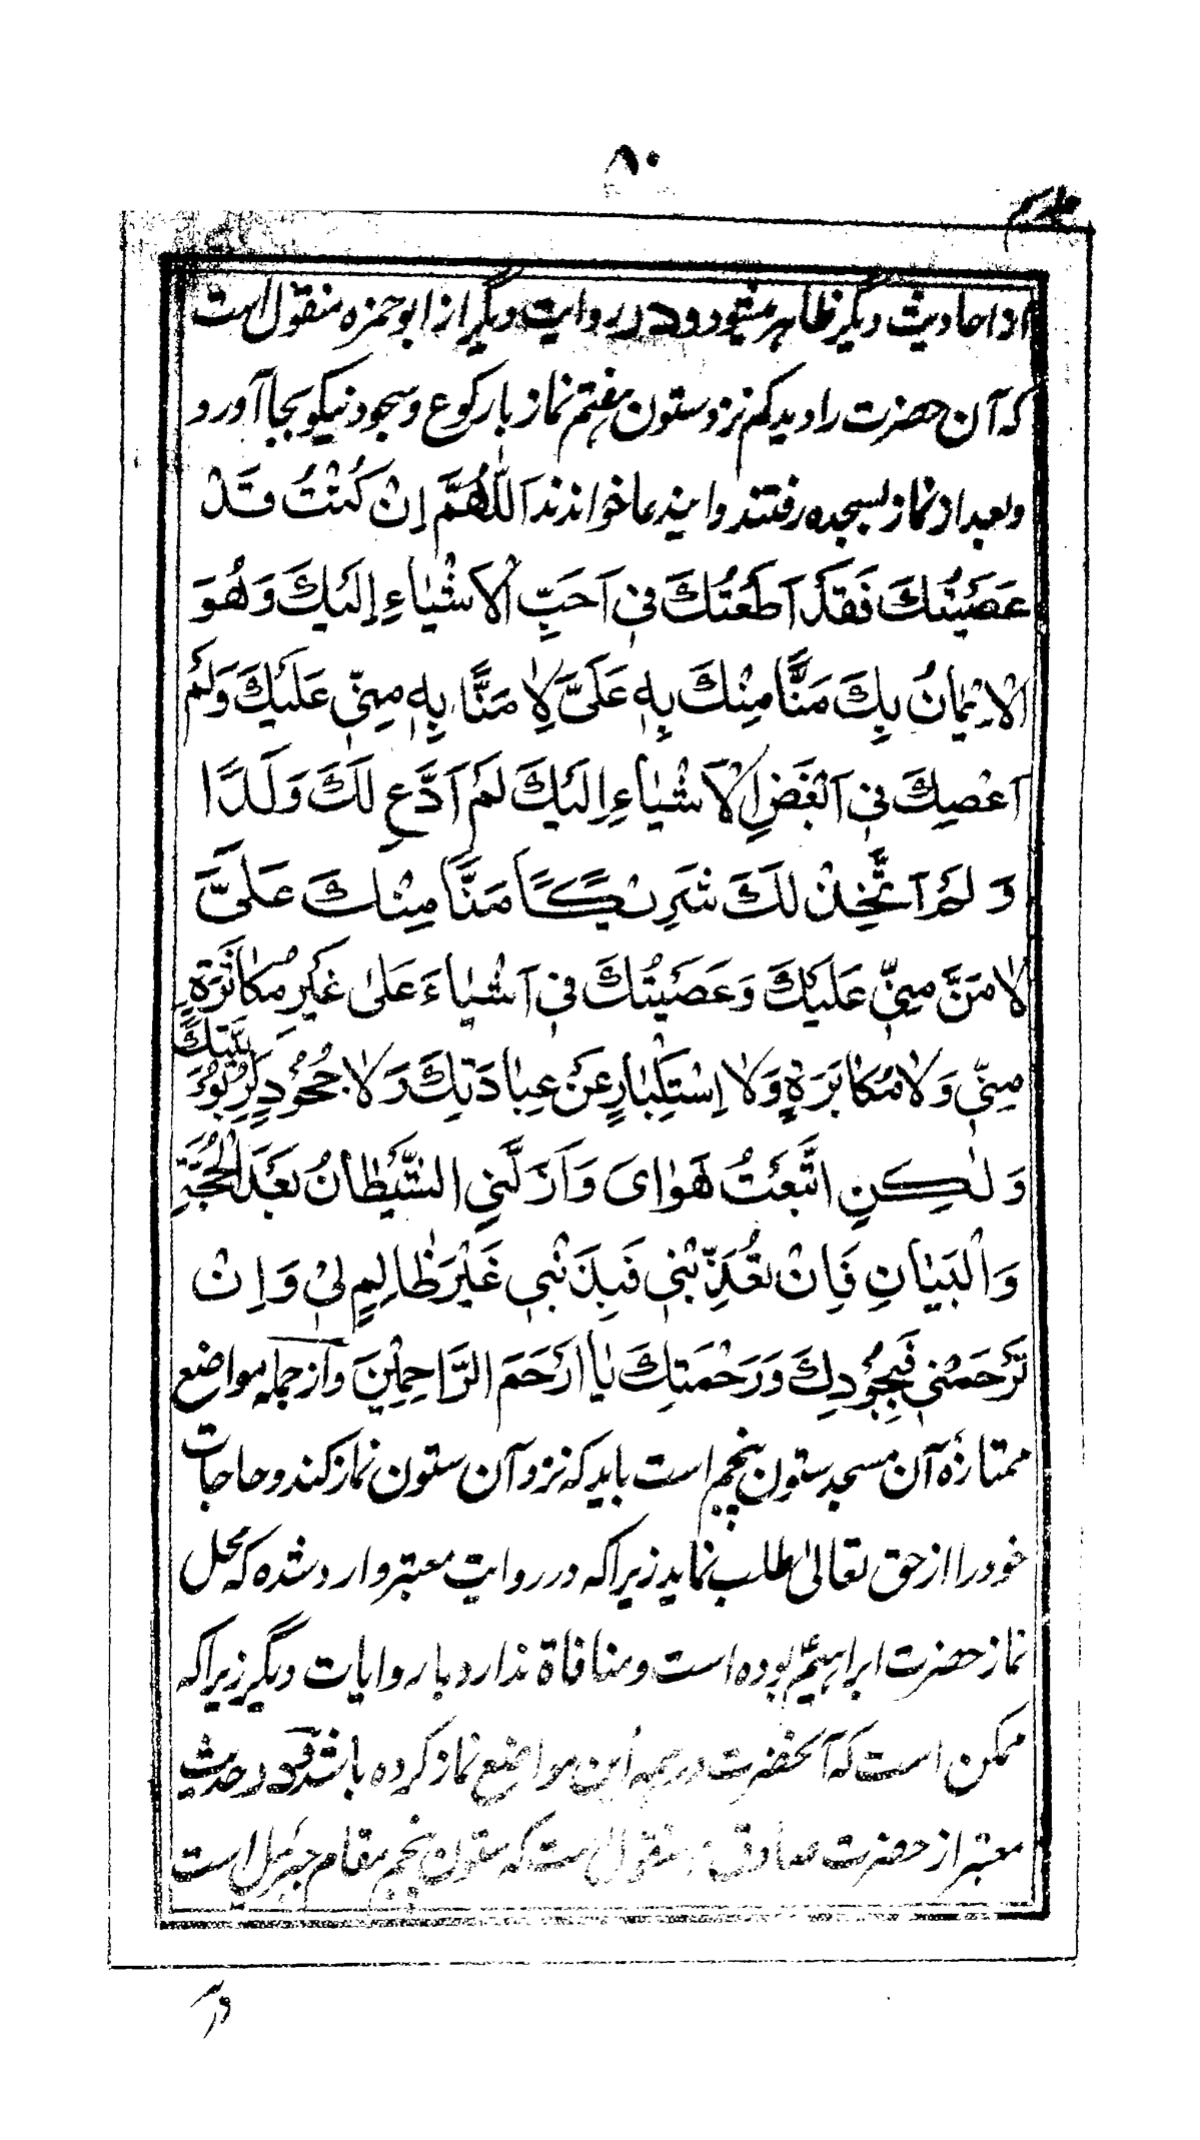 ۸۰
از احادیث دیگر ظاهر میشود و در روایت دیگر از ابو حمزه منقول است
که آن حضرت را دیدم که نزد ستون هفتم نماز با رکوع و سجود نیکو بجا آورد
و بعد از نماز بسجده رفتند و این دعا خواندند اَللّٰهُمَّ اِنْ كُنْتُ قَدْ
عَصَيْتُكَ فَقَدْ اَطَعْتُكَ فِي اَحَبِّ الْاَشْيٰاءِ اِلَيْكَ وَهُوَ
الْاِيْمٰانُ بِكَ مَنًّا مِنْكَ بِهِ عَلَيَّ لٰا مَنًّا بِهِ مِنِّي عَلَيْكَ وَلَمْ
اَعْصِكَ فِي اَبْغَضِ الْاَشْيٰاءِ اِلَيْكَ لَمْ اَدَّعِ لَكَ وَلَدًا
وَ لَمْ اَتَّخِذْ لَكَ شَرِيْكًا مَنًّا مِنْكَ عَلَيَّ
لٰا مَنَّ مِنِّي عَلَيْكَ وَ عَصَيْتُكَ فِي اَشْيٰاءَ عَلىٰ غَيْرِ مُكٰاثَرَةٍ
مِنِّي وَ لٰا مُكٰابَرَةٍ وَ لٰا اِسْتِكْبٰارٍ عَنْ عِبٰادَتِكَ وَ لٰا جُحُوْدٍ لِرُبُوْبِيَّتِكَ
وَ لٰكِنِ اتَّبَعْتُ هَوٰایَ وَ اَزَلَّنِي الشَّيْطٰانُ بَعْدَ الْحُجَّةِ
وَ الْبَيٰانِ فَاِنْ تُعَذِّبْنِي فَبِذَنْبِي غَيْرَ ظٰالِمٍ لِيْ وَ اِنْ
تَرْحَمْنِي فَبِجُوْدِكَ وَ رَحْمَتِكَ يٰا اَرْحَمَ الرَّاحِمِيْنَ و از جمله مواضع
ممتازهٔ آن مسجد ستون پنجم است باید که نزد آن ستون نماز کند و حاجات
خود را از حق تعالیٰ طلب نماید زیرا که در روایت معتبر وارد شده که محل
نماز حضرت ابراهیمؑ بوده است و منافاة ندارد با روایات دیگر زیرا که
ممکن است که آنحضرت در همه این مواضع نماز کرده باشد و در حدیث
معتبر از حضرت صادق منقول است که ستون پنجم مقام جبرئیل است